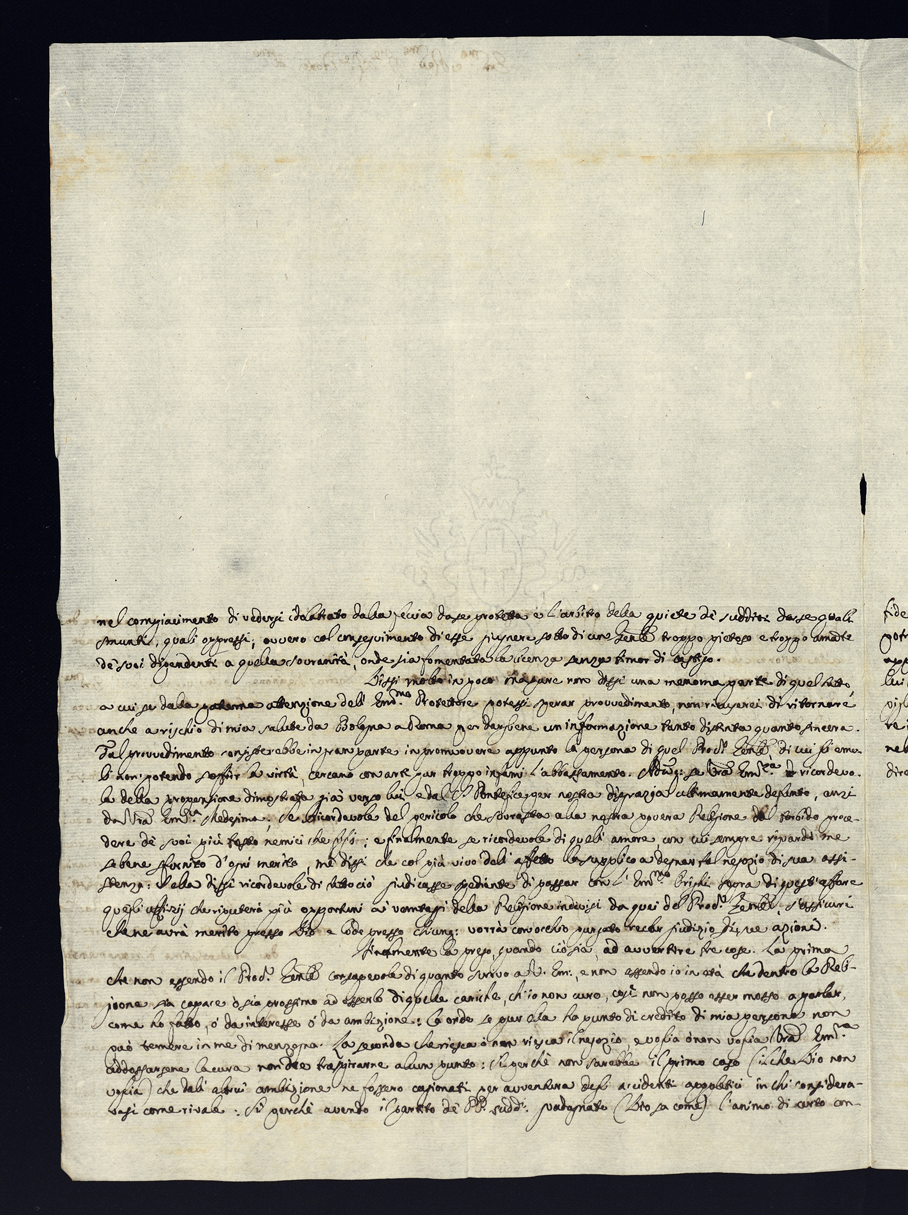 nel compiacimento di vedersi idolatrato dalla feccia da se protetta e l'arbitro della quiete de' sudditi da se quali
smunti, quali oppressi; ovvero col conseguimento di esse piugnere sotto di une troppo pietoso e troppo amante
de' suoi dipendenti a quella sovranità, onde sia fomentata la licenza senza timor di castigo.
Dissi molto in poco eppure non dissi una menoma parte di quel tutto,
a cui se dalla paterna attenzione dell' Em.mo Protettore potessi sperar provvedimento, non ricuserei di ritornare
anche a rischio di mia salute da Bologna a Roma per dargliene un informazione tanto distinta quanto sincera.
Tal provvedimento consisterebbe in gran parte in promuovere appunto la persona di quel Prod.e di cui gl'emu-
li non potendo soffrir la virtù, cercano con arti pur troppo infami l'abbassamento. se Vra Em.za è ricordevo-
le della propensione dimostrata già verso lui e dal Pontefice per nostra disgrazia ultimamente defunto, anzi
da Vra Em.za medesima; se ricordevole del pericolo che sovrasta alla nostra povera Religione dal torbido proce-
dere de' suoi più nemici che figli; e finalmente se ricordevole di quell' amore con cui sempre riguardò me
sebene sfornito d'ogni merito, mi dissi che col più vivo dell' affetto la supplico a degnar tal negozio di sua assi-
stenza: Se ella dissi ricordevole di tutto ciò giudicasse spediente di passar con l' Em.mo sovra di quest' affare
quegli uffizij che riputerà più opportuni a' vantaggi della Religione indivisi da quei del Prod.e s'assicuri
che ne avrà merito presso Dio e lode presso chiunq: vorrà con occhio purgato recar giudizio di sue azioni.
Finalmente la prego, quando ciò sia, ad avvertire tre cose. La prima
che non essendo il Prod.e consapevole di quanto scrivo a V. Em., e non essendo io in età che dentro la Reli-
gione sia capace o sia prossimo ad esserlo di quelle cariche, ch'io non curo, così non posso esser mosso a parlar,
come hò fatto, o da interesse o da ambizione: laonde se pur alla ha punto di credito di mia persona non
può temere in me di menzogna. La seconda che riesca o non riesca il negozio, e voglia o non voglia Vra Em.za
addossarsene la cura non dee traspirarne alcun punto: sì perchè non sarebbe il primo caso (il che Dio non
voglia) che dall' altrui ambizione ne fossero cagionati per avventura degl' accidenti appoletici in chi considera-
vasi come rivale: Sì perchè avendo il partito de' PP. sudd.i guadagnato (Dio sa come) l'animo di certo on-